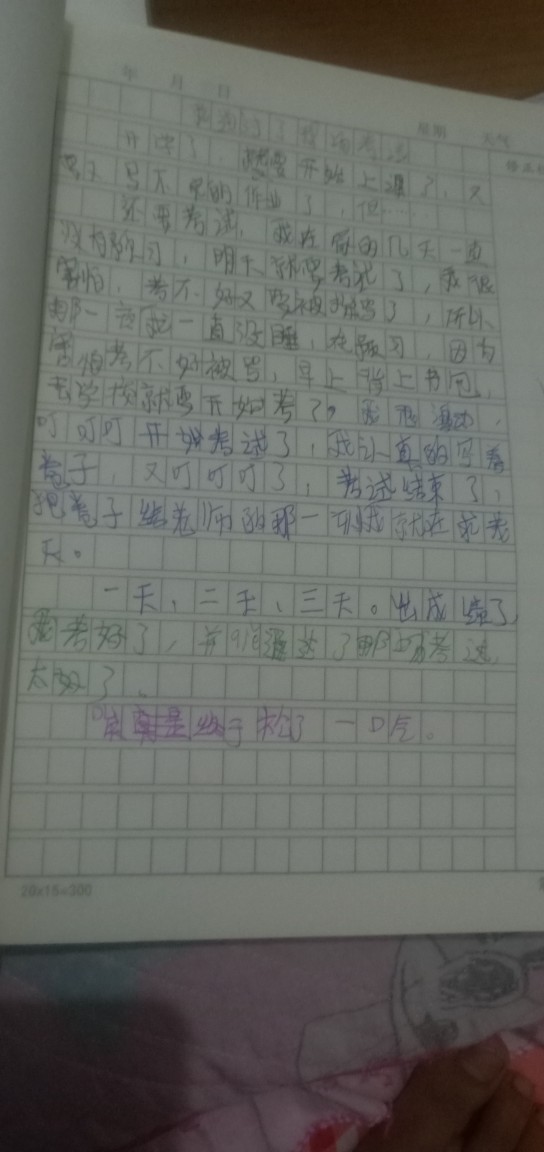 年 月 日
星期 天气
我通过了那场考试
开学了，就要开始上课了，又
要写不完的作业了，但……
还要考试，我在家的几天一直
没有预习，明天就要考试了，我很
害怕，考不好又要被骂了，所以
那一夜我一直没睡，在预习，因为
害怕考不好被骂，早上背上书包，
去学校就要开始考了。我很激动，
叮叮叮开始考试了，我认真的写着
卷子，又叮叮叮了，考试结束了，
把卷子给老师的那一刻我就在求老
天。
一天、二天、三天。出成绩了，
我考好了，并且通过了那场考试，
太好了。
终于松了一口气。
20×15=300